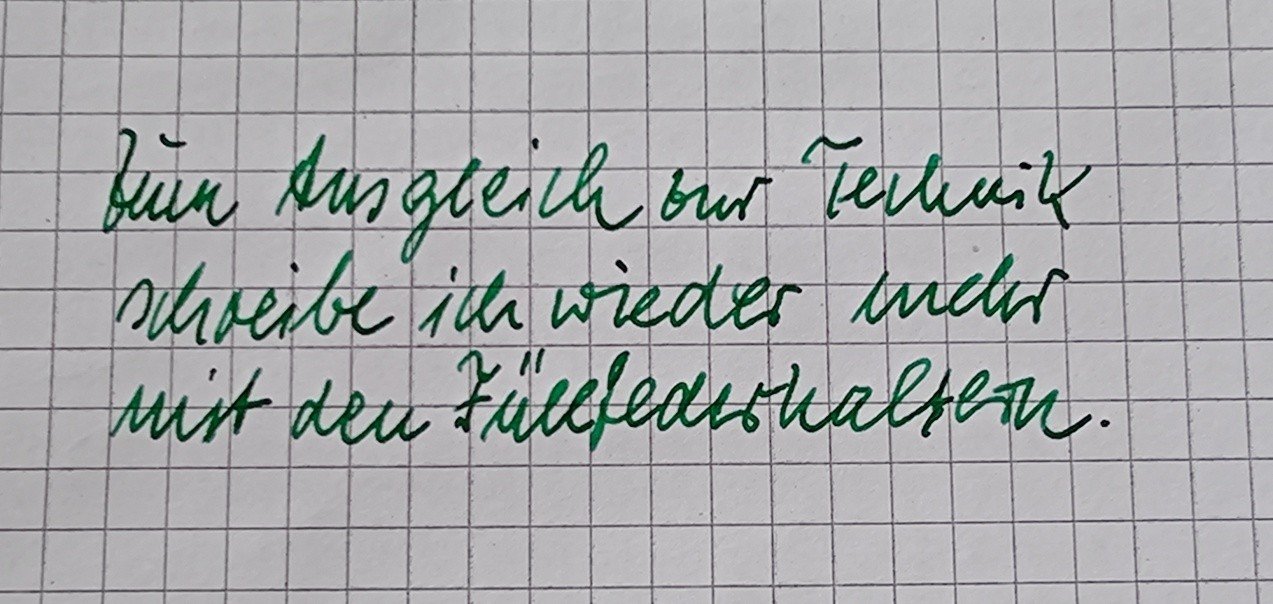 Zum Ausgleich zur Technik
schreibe ich wieder mehr
mit den Füllfederhaltern.